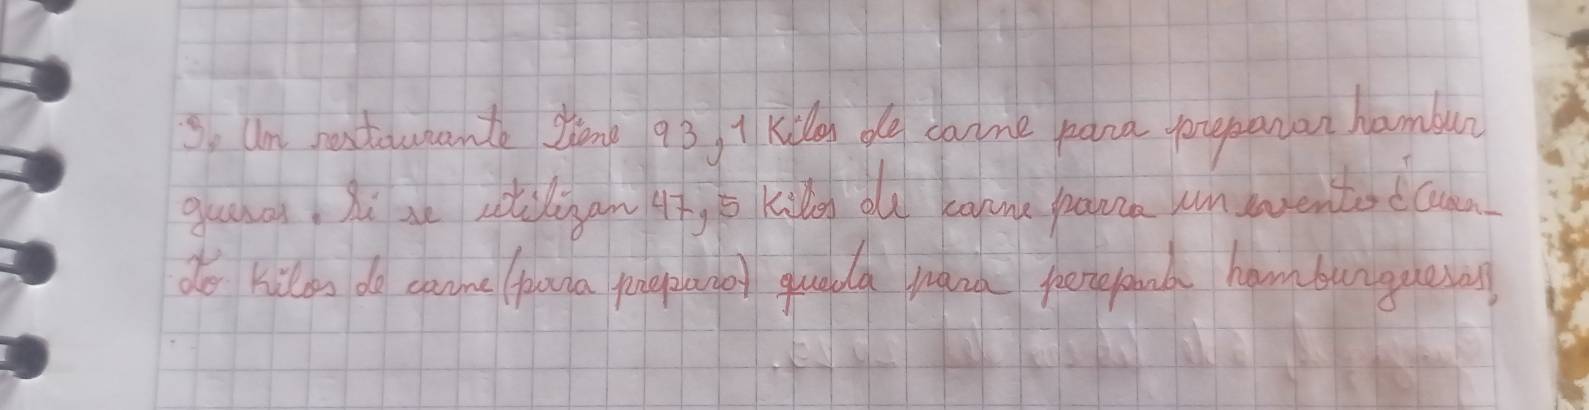 3. Un restaurante tiene 93,1 Kilos de carne para preparar hambur
guesas. Si se utilizan 47,5 Kilos de carne parra un evento ¿Cuan-
to kilos de carne (para preparo) queda para perepara hamburguesas,